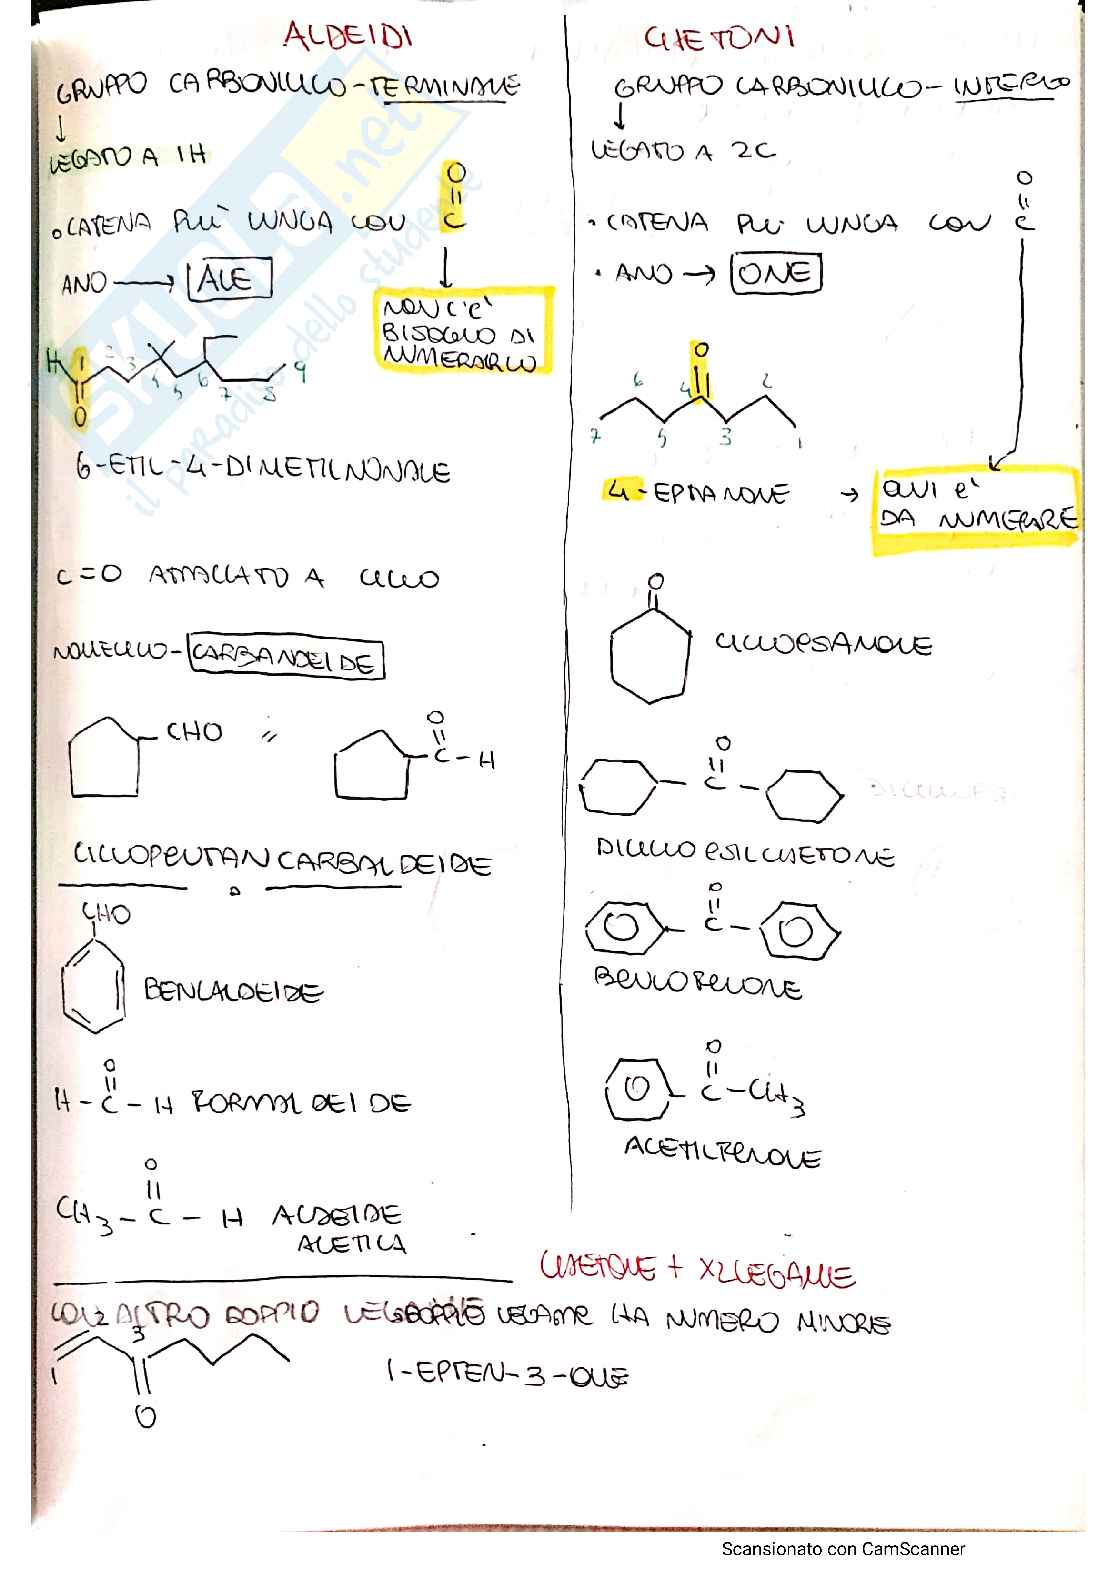 ALDEIDI
GRUPPO CARBONILICO-TERMINALE
↓
LEGATO A 1H
• CATENA PIÙ LUNGA CON
O
=
C
ANO → ALE
NON C'È
BISOGNO DI
NUMERARLO
H
2
3
4
5
6
7
8
9
O
6-ETIL-4-DIMETILNONALE
C=O ATTACCATO A CICLO
MOLECOLO-CARBANDEIDE
CHO
O
=
C-H
CICLOPENTANCARBALDEIDE
CHO
BENZALDEIDE
O
=
H-C-H FORMALDEIDE
O
=
CH3-C-H ALDEIDE
ACETICA
CHETONI
GRUPPO CARBONILICO-INTERNO
↓
LEGATO A 2C
• CATENA PIÙ LUNGA CON
O
=
C
• ANO → ONE
O
6
4
2
7
5
3
1
4-EPTANONE → QUI È
DA NUMERARE
O
CICLOESANONE
O
=
C
DICICLOESILCHETONE
O
=
C
BENZOFENONE
O
=
C-CH3
ACETILFENONE
CHETONE + X2LEGAME
CON ALTRO DOPPIO LEGAME HA NUMERO MINORE
3
1
O
1-EPTEN-3-ONE
Scansionato con CamScanner
SKUOLA.net
il paradiso dello studente